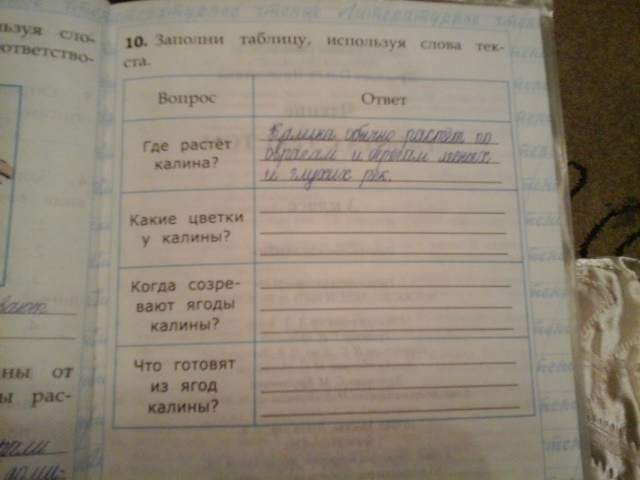 ьзуя сло-
ответство-
ны от
ы рас-
10. Заполни таблицу, используя слова тек-
ста.
Вопрос
Ответ
Где растёт
калина?
Калина обычно растёт по
оврагам и берегам
и глухих рек.
Какие цветки
у калины?
Когда созре-
вают ягоды
калины?
Что готовят
из ягод
калины?